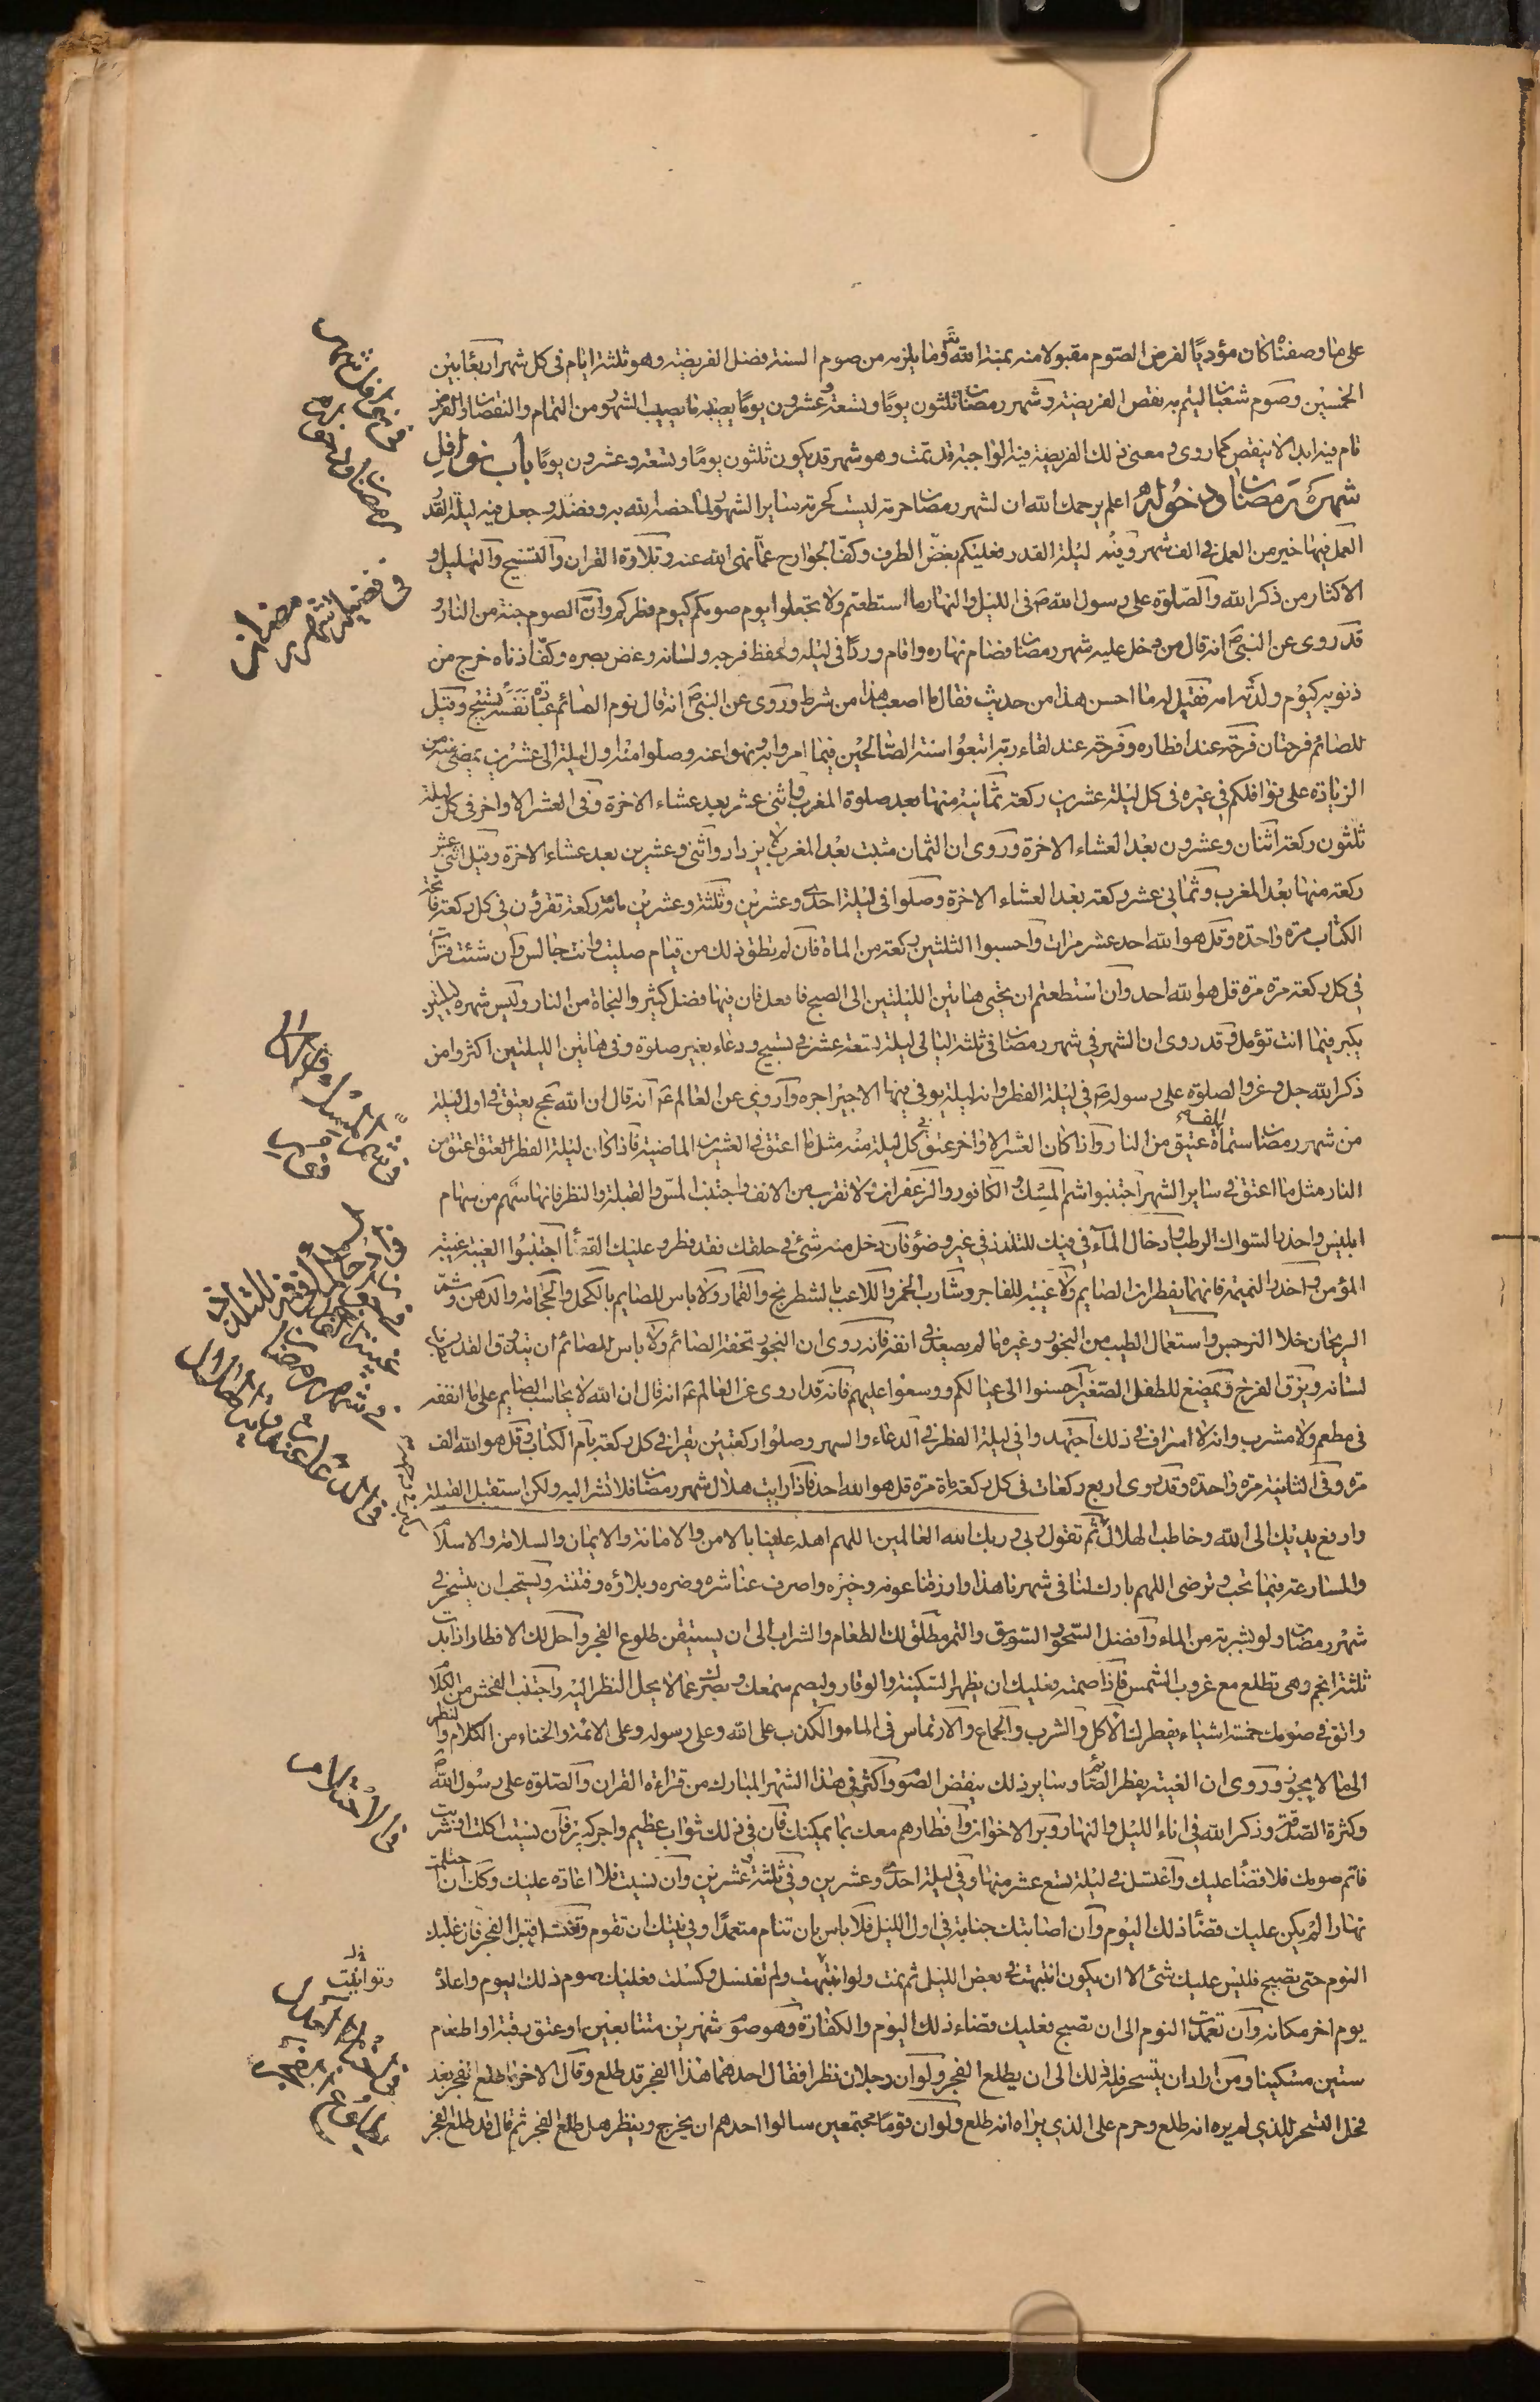 على ما وصفناه كان مؤديًا لفرض الصوم مقبولا منه بمنة الله تعالى وما يلزمه من صوم السنة فضل الفريضة وهو ثلثة ايام في كل شهر اربعًا بين
الخمسين وصوم شعبان ليتم به نقص الفريضة وشهر رمضان ثلثون يومًا وتسعة وعشرون يومًا يصيبه ما يصيب الشهور من التمام والنقصان والفرض
تام فيه ابدا لا ينقص كما روى ومعنى ذلك الفريضة فيه الواجبة قد تمت وهو شهر قد يكون ثلثون يومًا وتسعة وعشرون يومًا باب نوافل
شهر رمضان ودخوله اعلم يرحمك الله ان لشهر رمضان حرمة ليست كحرمة ساير الشهور لما خصه الله به وفضله وجعل فيه ليلة القدر
العمل فيها خير من العمل في الف شهر وفيه ليلة القدر فعليكم بغض الطرف وكف الجوارح عما نهى الله عنه وتلاوة القران والتسبيح والتهليل و
الاكثار من ذكر الله والصلوة على رسول الله ص في الليل والنهار ما استطعتم ولا تجعلوا يوم صومكم كيوم فطركم وان الصوم جنة من النار و
قد روى عن النبي ص انه قال من دخل عليه شهر رمضان فصام نهاره واقام وردًا في ليله وحفظ فرجه ولسانه وغض بصره وكف اذناه خرج من
ذنوبه كيوم ولدته امه فقيل له ما احسن هذا من حديث فقال ما اصعب هذا من شرط وروى عن النبي ص انه قال نوم الصائم عبادة ونفسه تسبيح وقيل
للصائم فرحتان فرحة عند افطاره وفرحة عند لقاء ربه اتبعوا سنة الصالحين فيما امروا به ونهوا عنه وصلوا منه اول ليلة الى عشرين يمضي منه من
الزيادة على نوافلكم في غيره في كل ليلة عشرين ركعة ثمانية منها بعد صلوة المغرب واثنى عشر بعد عشاء الاخرة وفي العشر الاواخر في كل ليلة
ثلثون ركعة اثنان وعشرون بعد العشاء الاخرة وروى ان الثمان مثبت بعد المغرب لا يزداد واثنى وعشرين بعد عشاء الاخرة وقيل اثنى عشر
ركعة منها بعد المغرب وثماني عشر ركعة بعد العشاء الاخرة وصلوا في ليلة احدى وعشرين وثلثة وعشرين مائة ركعة تقرؤن في كل ركعة فاتحة
الكتاب مرة واحدة وقل هو الله احد عشر مرات واحسبوا الثلثين ركعة من الماة فان لم تطق ذلك من قيام صليت وانت جالس وان شئت قرأت
في كل ركعة مرة مرة قل هو الله احد وان استطعتم ان تحيى هاتين الليلتين الى الصبح فافعل فان فيها فضل كثير والنجاة من النار وليس شهره ليلتين
يكبر فيما انت تؤمل وقد روى ان الشهر في شهر رمضان في ثلثة ليالي ليلة تسعة عشر في تسبيح ودعاء بغير صلوة وفي هاتين الليلتين اكثروا من
ذكر الله جل وعز والصلوة على رسوله ص في ليلة الفطر وانه ليلة يوفي فيها الاجير اجره واروى عن العالم ع انه قال ان الله عج يعتق في اول ليلة
من شهر رمضان ستماة الف عتيق من النار واذا كان العشر الاواخر عتق في كل ليلة منه مثل ما اعتق في العشرين الماضية فاذا كان ليلة الفطر العتق اعتق من
النار مثل ما اعتق في ساير الشهر اجتنبوا شم المسك والكافور والزعفران ولا تقرب من الانف واجتنب المس والقبلة والنظر فانها سهم من سهام
ابليس واحذر السواك الرطب وادخال الماء في فيك للتلذذ في غير وضوء فان دخل منه شئ في حلقك فقد فطر وعليك القضا اجتنبوا الغيبة غيبة
المؤمن واحذر النميمة فانهما يفطران الصايم ولا غيبة للفاجر وشارب الخمر واللاعب بالشطرنج والقمار ولا باس للصايم بالكحل والحجامة والدهن وشم
الريحان خلا النرجس واستعمال الطيب من البخور وغيره ما لم يصعد في انفه فانه روى ان البخور تحفة الصائم ولا باس للصائم ان يتذوق القدر بطرف
لسانه ويزق الفرخ ويمضغ للطفل الصغير احسنوا الى عيالكم ووسعوا عليهم فانه قد اروى عن العالم ع انه قال ان الله لا يحاسب الصايم على ما انفقه
في مطعم ولا مشرب وانه لا اسراف في ذلك اجتهدوا في ليلة الفطر في الدعاء والسهر وصلوا ركعتين يقرا في كل ركعة بام الكتاب وقل هو الله الف
مرة وفي الثانية مرة واحدة وقد روى اربع ركعات في كل ركعة ماة مرة قل هو الله احد فاذا رايت هلال شهر رمضان فلا تشر اليه ولكن استقبل القبلة
وارفع يديك الى الله وخاطب الهلال ثم تقول ربي وربك الله رب العالمين اللهم اهله علينا بالامن والامانة والايمان والسلامة والاسلام
والمسارعة فيما تحب وترضى اللهم بارك لنا في شهرنا هذا وارزقنا عونه وخيره واصرف عنا شره وضره وبلاؤه وفتنته ويستحب ان يتسحر في
شهر رمضان ولو بشربة من الماء وافضل السحور السويق والتمر مطلق لك الطعام والشراب الى ان يستيقن طلوع الفجر واحل لك الافطار اذا بدت
ثلثة انجم وهي تطلع مع غروب الشمس فاذا صمت فعليك ان يظهر السكينة والوقار وليصم سمعك وبصرك عما لا يحل النظر اليه واجتنب الفحش من الكلام
واتق في صومك خمسة اشياء يفطرك الاكل والشرب والجماع والارتماس في الماء والكذب على الله وعلى رسوله وعلى الائمة والخناء من الكلام والنظر
الى ما لا يجوز وروى ان الغيبة يفطر الصائم وساير ذلك ينقض الصوم واكثر في هذا الشهر المبارك من قراءة القران والصلوة على رسول الله ص
وكثرة الصدقة وذكر الله في اناء الليل والنهار وبر الاخوان وافطارهم معك بما يمكنك فان في ذلك ثواب عظيم واجر كبير فان نسيت اكلت او شربت
فاتم صومك فلا قضا عليك واغتسل في ليلة تسع عشر منها وفي ليلة احدى وعشرين وفي ثلثة وعشرين وان نسيت فلا اعادة عليك وكل ان احتلمت
نهارا لم يكن عليك قضا ذلك اليوم وان اصابتك جنابة في اول الليل فلا باس بان تنام متعمدًا وفي نيتك ان تقوم وتغتسل قبل الفجر فان غلبك
النوم حتى تصبح فليس عليك شئ الا ان يكون انتبهت في بعض الليل ثم نمت ولو انتبهت ولم تغتسل وكسلت فعليك صوم ذلك اليوم واعادة
يوم اخر مكانه وان تعمدت النوم الى ان تصبح فعليك قضاء ذلك اليوم والكفارة وهو صوم شهرين متتابعين او عتق رقبة او اطعام
ستين مسكينا ومن اراد ان يتسحر فله ذلك الى ان يطلع الفجر ولو ان رجلان نظرا فقال احدهما هذا الفجر قد طلع وقال الاخر ما طلع الفجر بعد
فحل التسحر للذي لم يره انه طلع وحرم على الذي يراه انه طلع ولو ان قومًا مجتمعين سالوا احدهم ان يخرج وينظر هل طلع الفجر ثم قال قد طلع الفجر